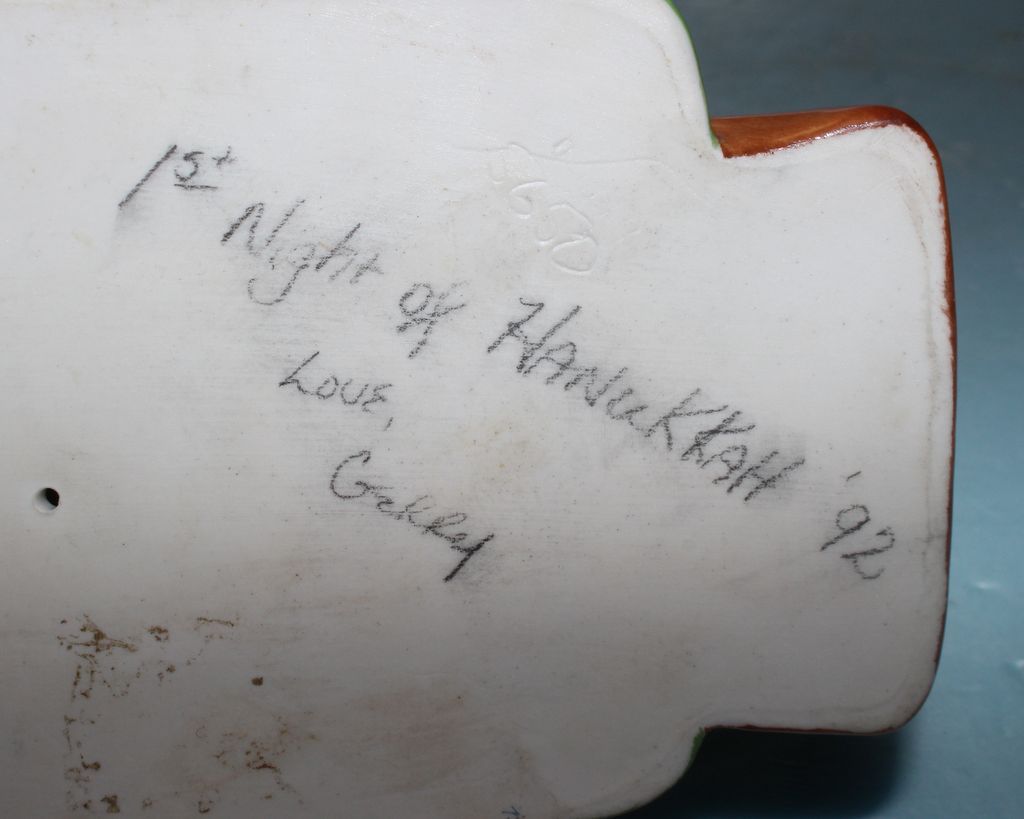 1st Night of HANUKKAH '92
Love,